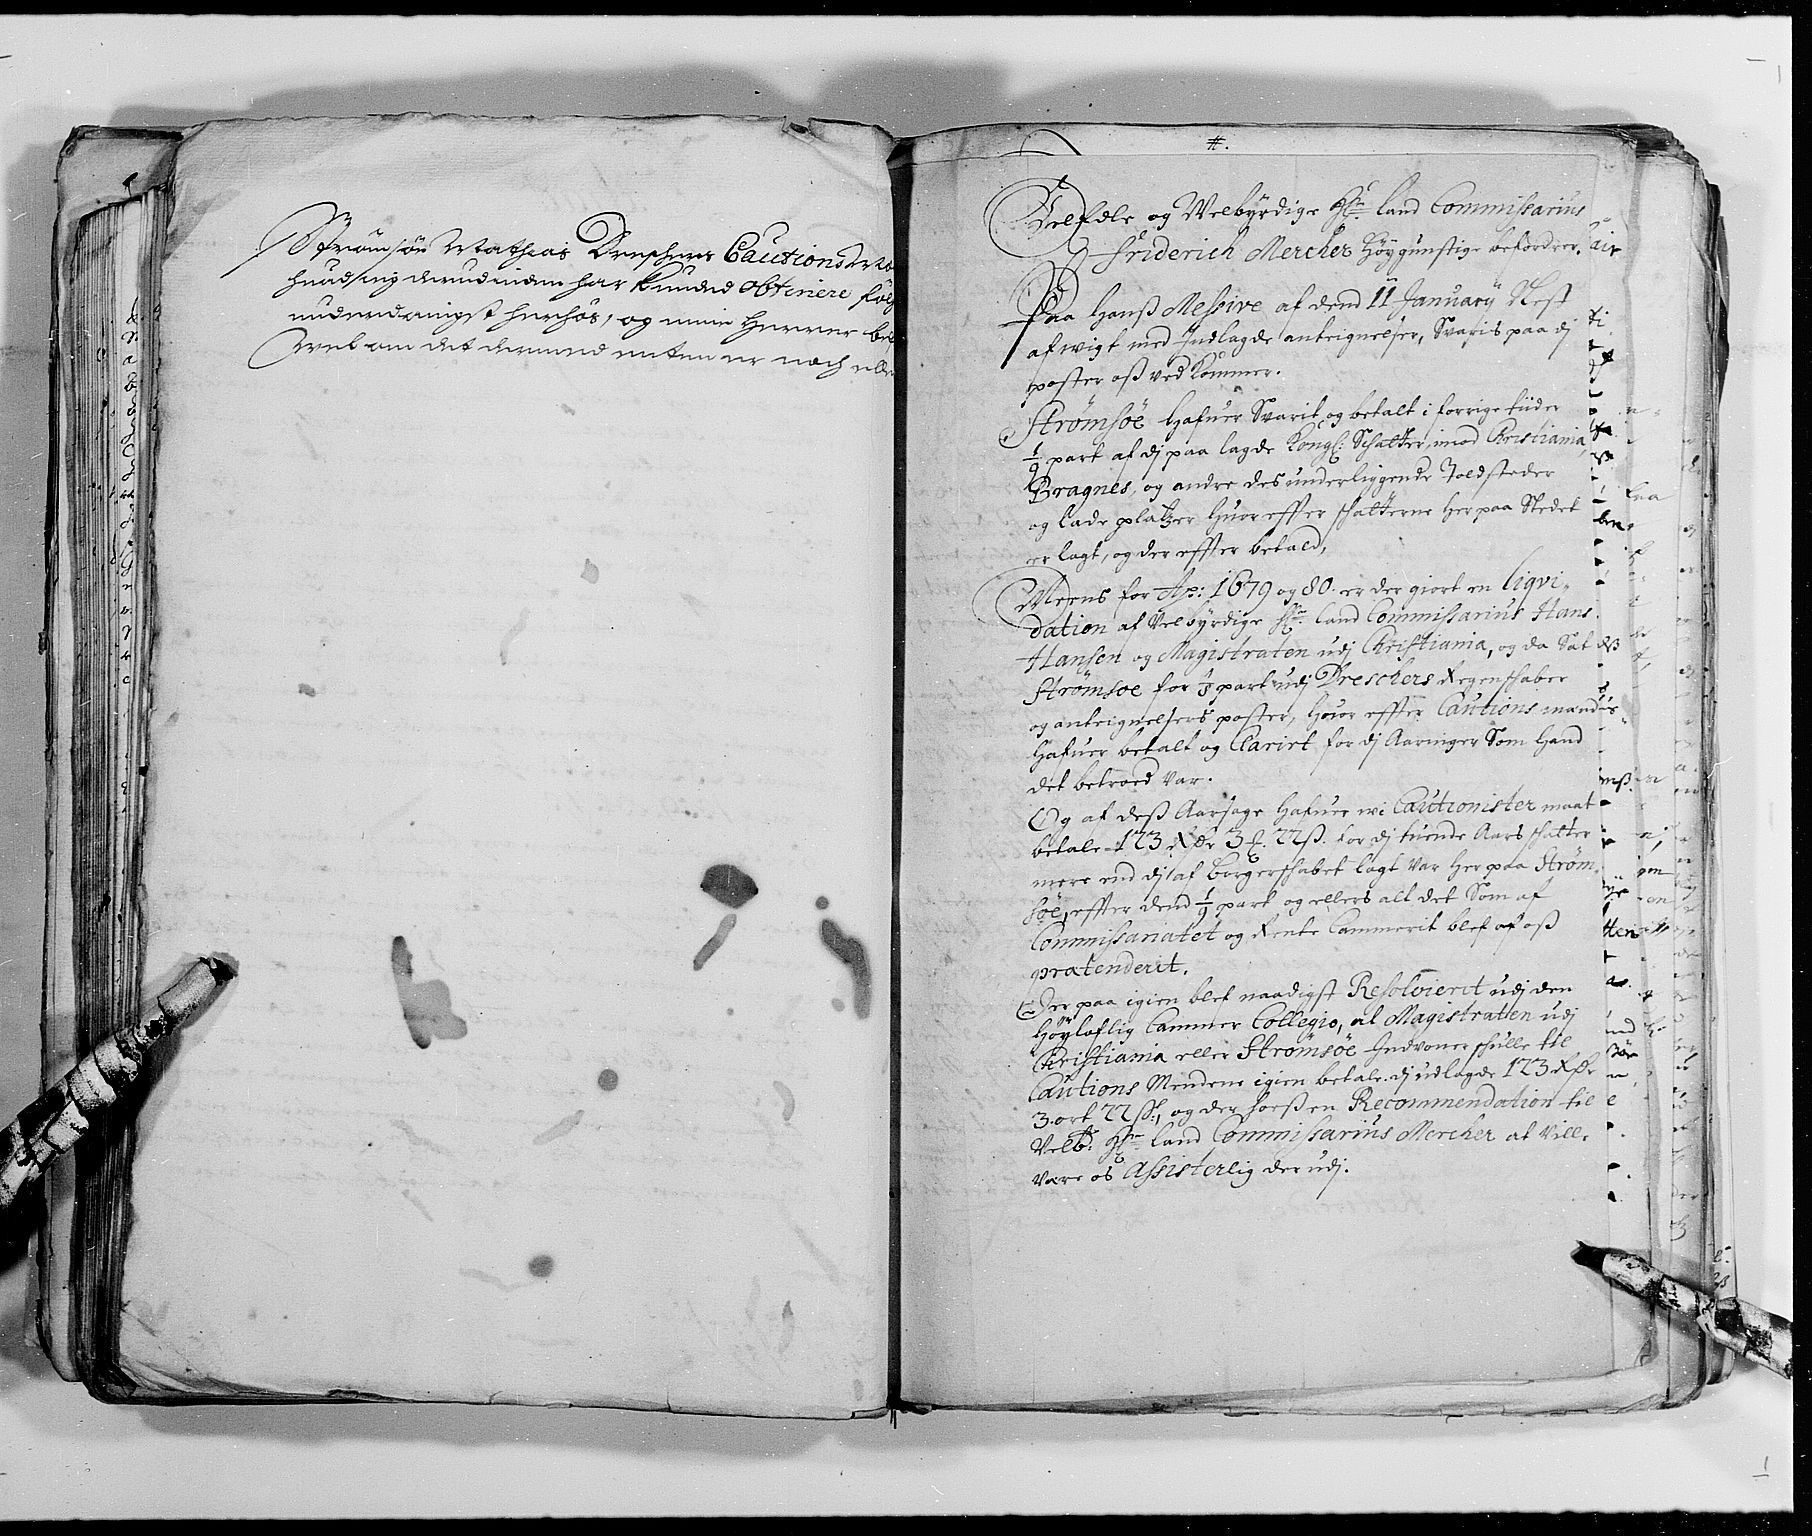 Strømsøe Mathias Dreschers Cautions
huad ieg derudinden har kunded obtinere føl
underdanigst herhos, og min Herrer be
vel om det dermed enten er noch eller
#.
Velædle og Velbyrdige Hr: land Commissarius
Friderich Mercher Høygunstige befordrer.
Paa Hanß Messive af dend 11 January Nest
afwigt med Indlagde anteignelser, Svaris paa dj
poster oß ved kommer.
Strømsøe Hafuer Svarit og betalt i forrige tiider
1/9 part af dj paa lagde Kongl: Schatter, imod Christiania,
Bragnes, og andre des underliggende Toldsteder
og lade platzer huor effter schatterne her paa Stedet
er lagt, og der effter betald,
Meens for Ao: 1679 og 80. er der giort en liqvi-
dation af Velbyrdige Hr: land Commissarius Hans
Hansen og Magistraten udj Christiania, og da Sat
Strømsoe for part udj Dreschers Regenschaber
og anteignelsers poster, huor effter Cautions mand
Hafuer betalt og Clarirt for dj Aaringer Som hand
det betroed var.
Og af deß Aarsage Hafuer wi Cautionister maat
betale 123 Rdr 3 . 22ß. for dj tuende Aars schatter
mere end dj af borgerschabet lagt var her paa Strøm-
søe, effter dend 1/9 part og ellers alt det Som af
Commissariatet og Rente Cammerit blef af oß
prætenderit.
Der paa igien blef naadigst Resolvierit udj den
Høyloflig Cammer Collegio, at Magistraten udj
Christiania eller Strømsöe Indvoner schulle til
Cautions Mendene igien betale dj udlagde 123 Rdr
3. ort 22 ß:, og der hoeß en Recommendation til
Velb: Hr: land Commissarius Mercher at Ville
være os Assisterlig der udj.